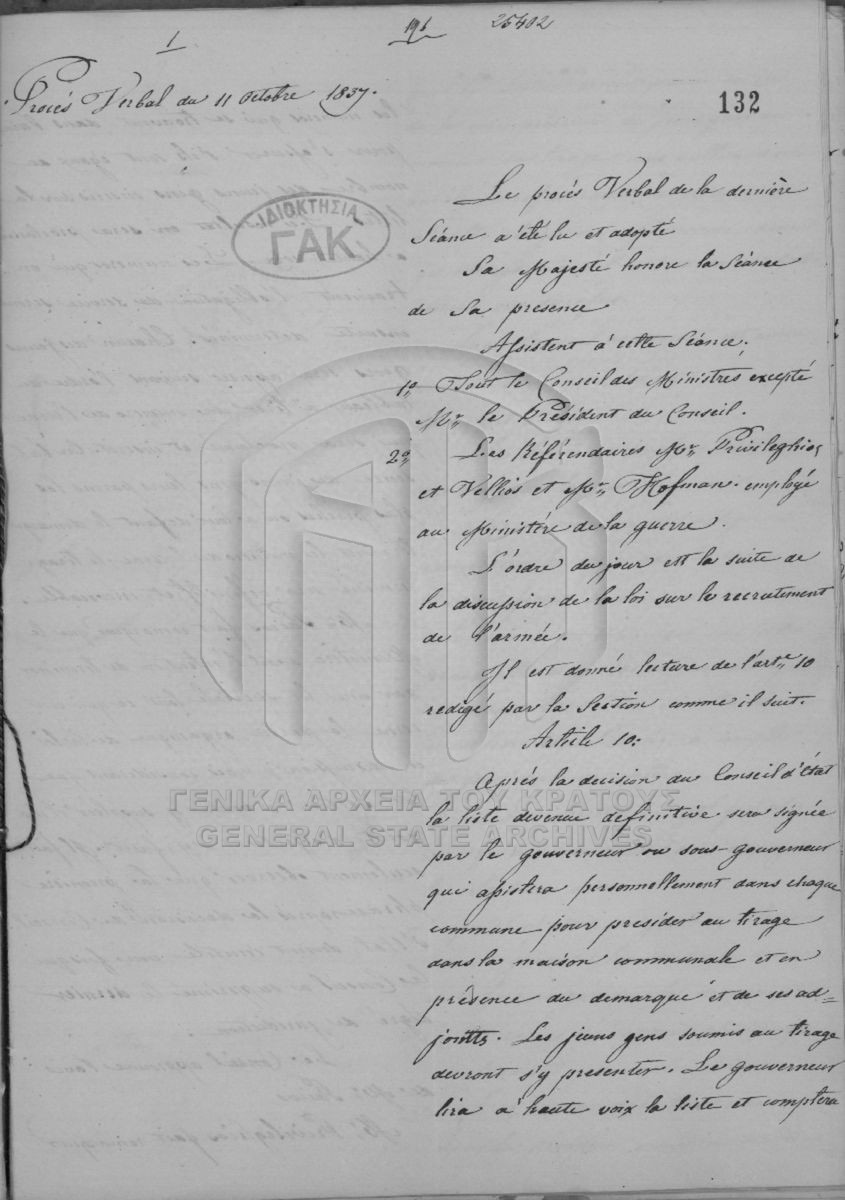 1
196
25402
Procés Verbal du 11 Octobre 1837.
132
ΙΔΙΟΚΤΗΣΙΑ
ΓΑΚ
Le procés Verbal de la dernière
Séance a été lu et adopté
Sa Majesté honore la Séance
de Sa presence
Assistent à cette Séance.
1º Tout le Conseil des Ministres excepté
Mr. le Président du Conseil.
2º Les Référendaires Mr. Privileghios
et Vellios et Mr. Hofman. employé
au Ministére de la guerre.
L'ordre du jour est la suite de
la discussion de la loi sur le recrutement
de l'armée.
Il est donné lecture de l'artle 10
redigé par la Section comme il suit.
Article 10:
Aprés la decision du Conseil d'état
la liste devenue definitive sera signée
par le gouverneur ou sous-gouverneur
qui assistera personnellement dans chaque
commune pour presider au tirage
dans la maison communale et en
présence du demarque et de ses ad=
joints. Les jeuns gens soumis au tirage
devront s'y presenter. Le gouverneur
lira à haute voix la liste et comptera
ΓΕΝΙΚΑ ΑΡΧΕΙΑ ΤΟΥ ΚΡΑΤΟΥΣ
GENERAL STATE ARCHIVES